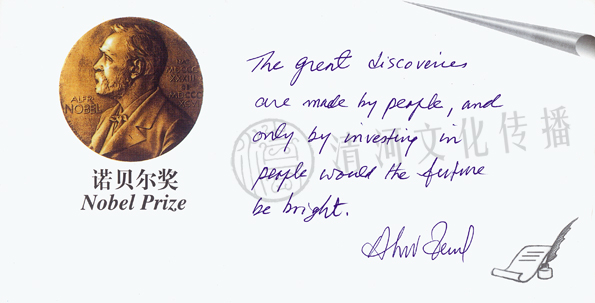 ALFR.
NOBEL
诺贝尔奖
Nobel Prize
The great discoveries
are made by people, and
only by investing in
people would the future
be bright.
清河文化传播